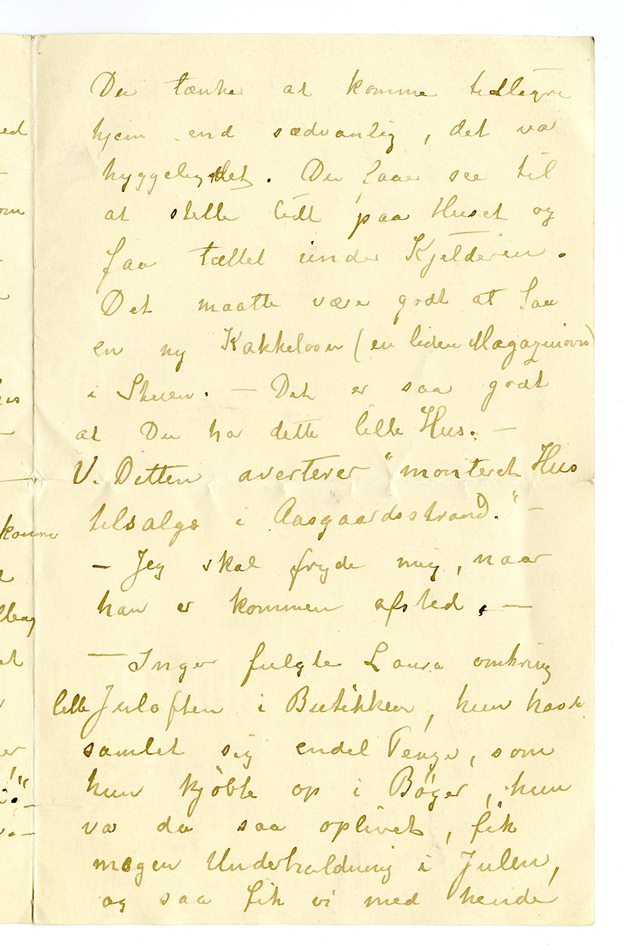 Du tænker at komme tidligere
hjem end sædvanlig, det var
hyggeligt det. Du faar see til
at stelle lidt paa Huset og
faa tættet under Kjelderen.
Det maatte være godt at faa
en ny Kakkelovn (en liden Magazinovn)
i Stuen. – Det er saa godt
at Du har dette lille Hus. –
V. Ditten averterer "monteret Hus
tilsalgs i Aasgaardsstrand." –
– Jeg skal fryde mig, naar
han er kommen afsted. –
– Inger fulgte Laura omkring
lille Juleaften i Butikker, hun havde
samlet sig endel Penge, som
hun kjøbte op i Bøger, hun
var da saa oplivet, fik
megen Underholdning i Julen,
og saa fik vi med hende
ed
om
komme
et
er